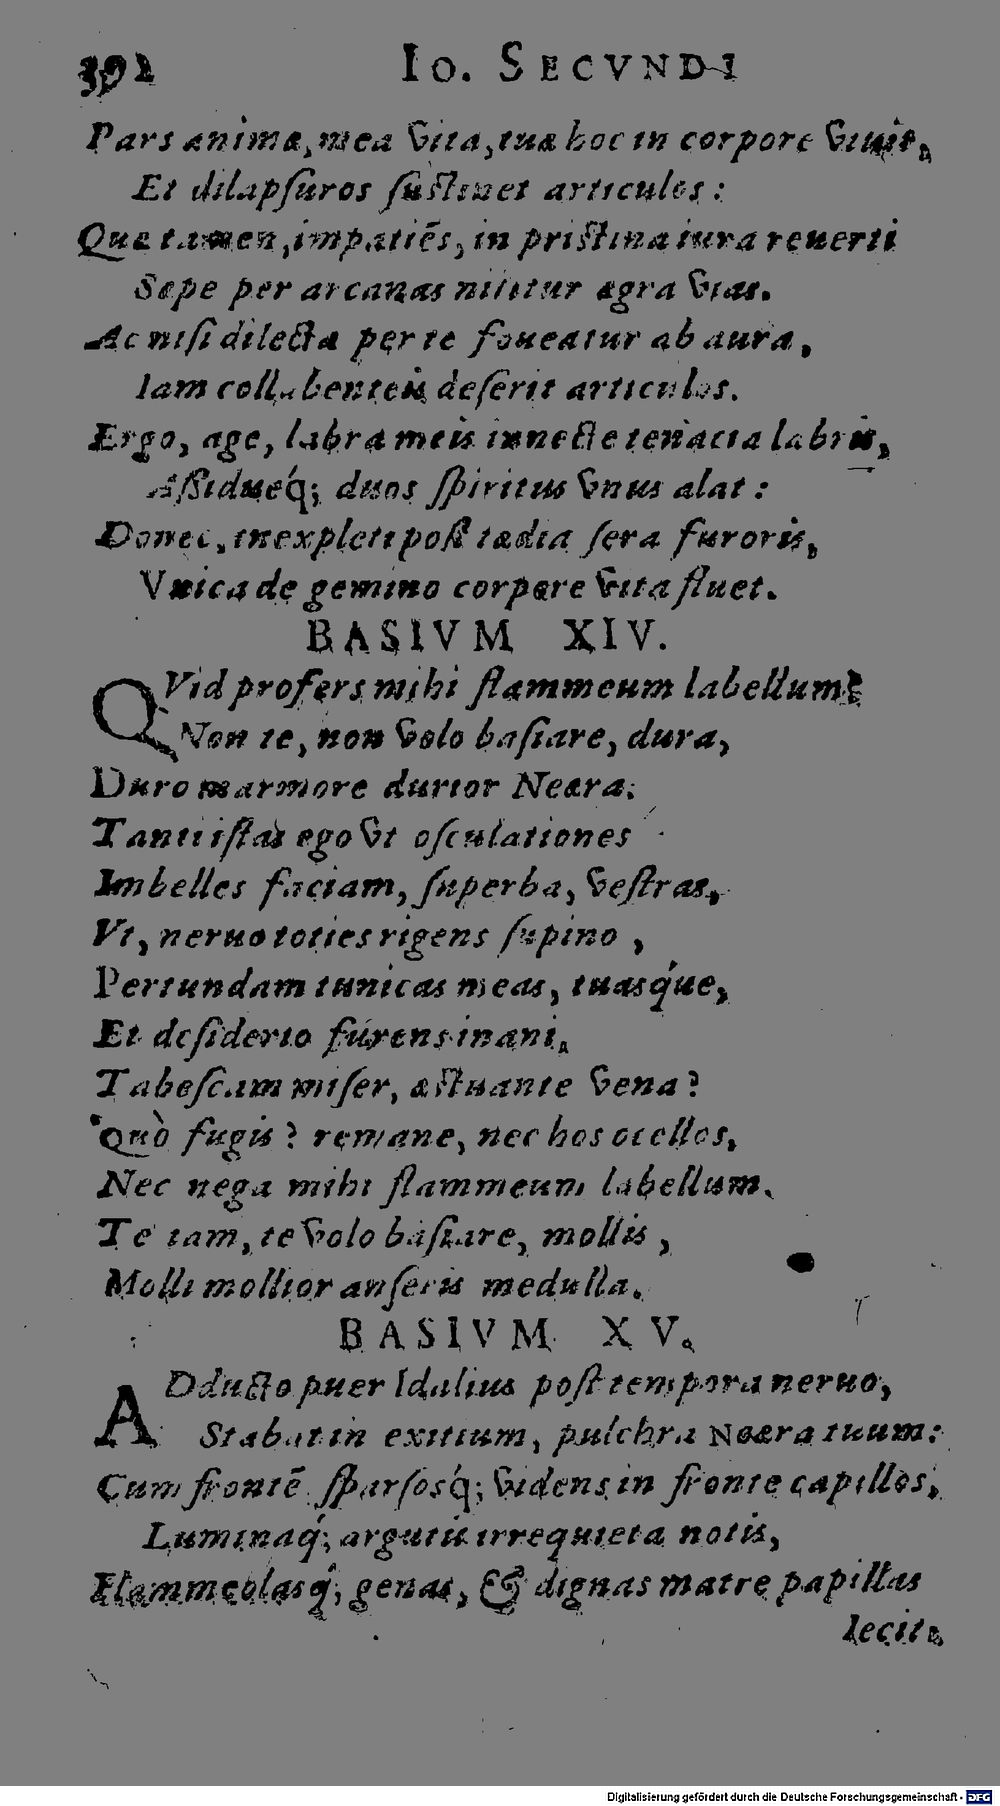 392 Io. SECVNDI
Pars animæ, mea vita, tuæ hoc in corpore viuit,
Et dilapſuros ſuſtinet articulos:
Quæ tamen, impatiēs, in priſtina iura reuerti
Sæpe per arcanas nititur ægra vias.
Ac niſi dilecta per te foueatur ab aura,
Iam collabenteis deſerit articulos.
Ergo, age, labra meis innecte tenacia labris,
Aſsidueq́; duos ſpiritus vnus alat:
Donec, inexpleti poſt tædia ſera furoris,
Vnica de gemino corpore vita fluet.
BASIVM XIV.
QVid profers mihi flammeum labellum?
Non te, non volo baſiare, dura,
Duro marmore durior Neæra.
Tanti iſtas ego vt oſculationes
Imbelles faciam, ſuperba, veſtras,
Vt, neruo toties rigens ſupino,
Pertundam tunicas meas, tuasq́ue,
Et deſiderio furens inani,
Tabeſcam miſer, æſtuante vena?
Quò fugis? remane, nec hos ocellos,
Nec nega mihi flammeum labellum.
Te iam, te volo baſiare, mollis,
Molli mollior anſeris medulla.
BASIVM XV.
ADducto puer Idalius poſt tempora neruo,
Stabat in exitium, pulchra Neæra tuum:
Cum frontē ſparſosq́; videns in fronte capillos,
Luminaq́; argutis irrequieta notis,
Flammeolasq́; genas, & dignas matre papillas
Iecit,
Digitalisierung gefördert durch die Deutsche Forschungsgemeinschaft - DFG